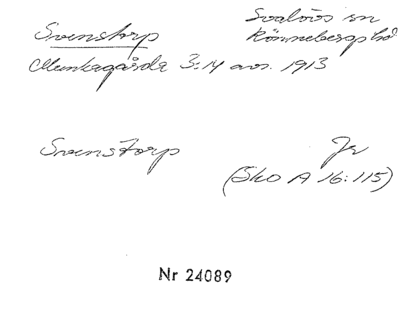 Svenstorp
Svalövs sn
Rönnebergs hd
Munkagårda 3:14 avs. 1913
Svenstorp
Jr
(Sko A 16:115)
Nr 24089